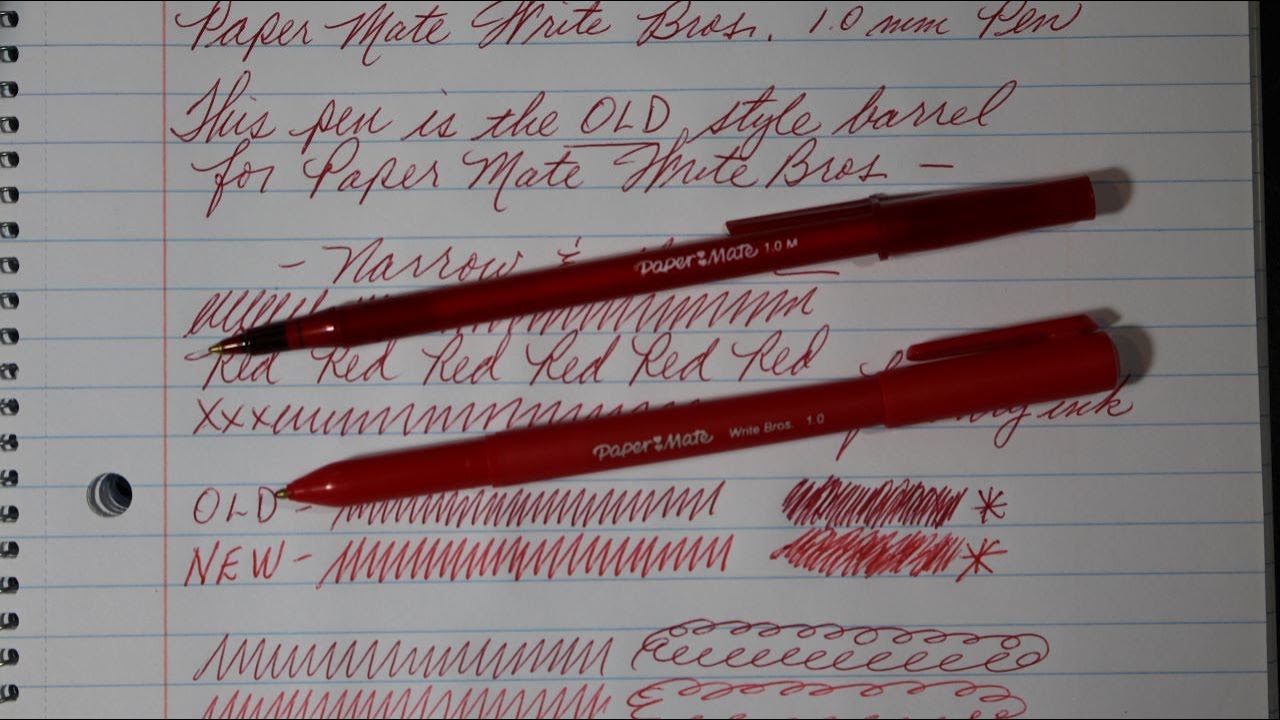 Paper Mate Write Bros. 1.0 mm Pen
This pen is the OLD style barrel
for Paper Mate Write Bros —
- Narrow &
Paper Mate 1.0 M
Red Red Red Red Red Red
xxx
ink
Paper Mate Write Bros. 1.0
OLD -
NEW -